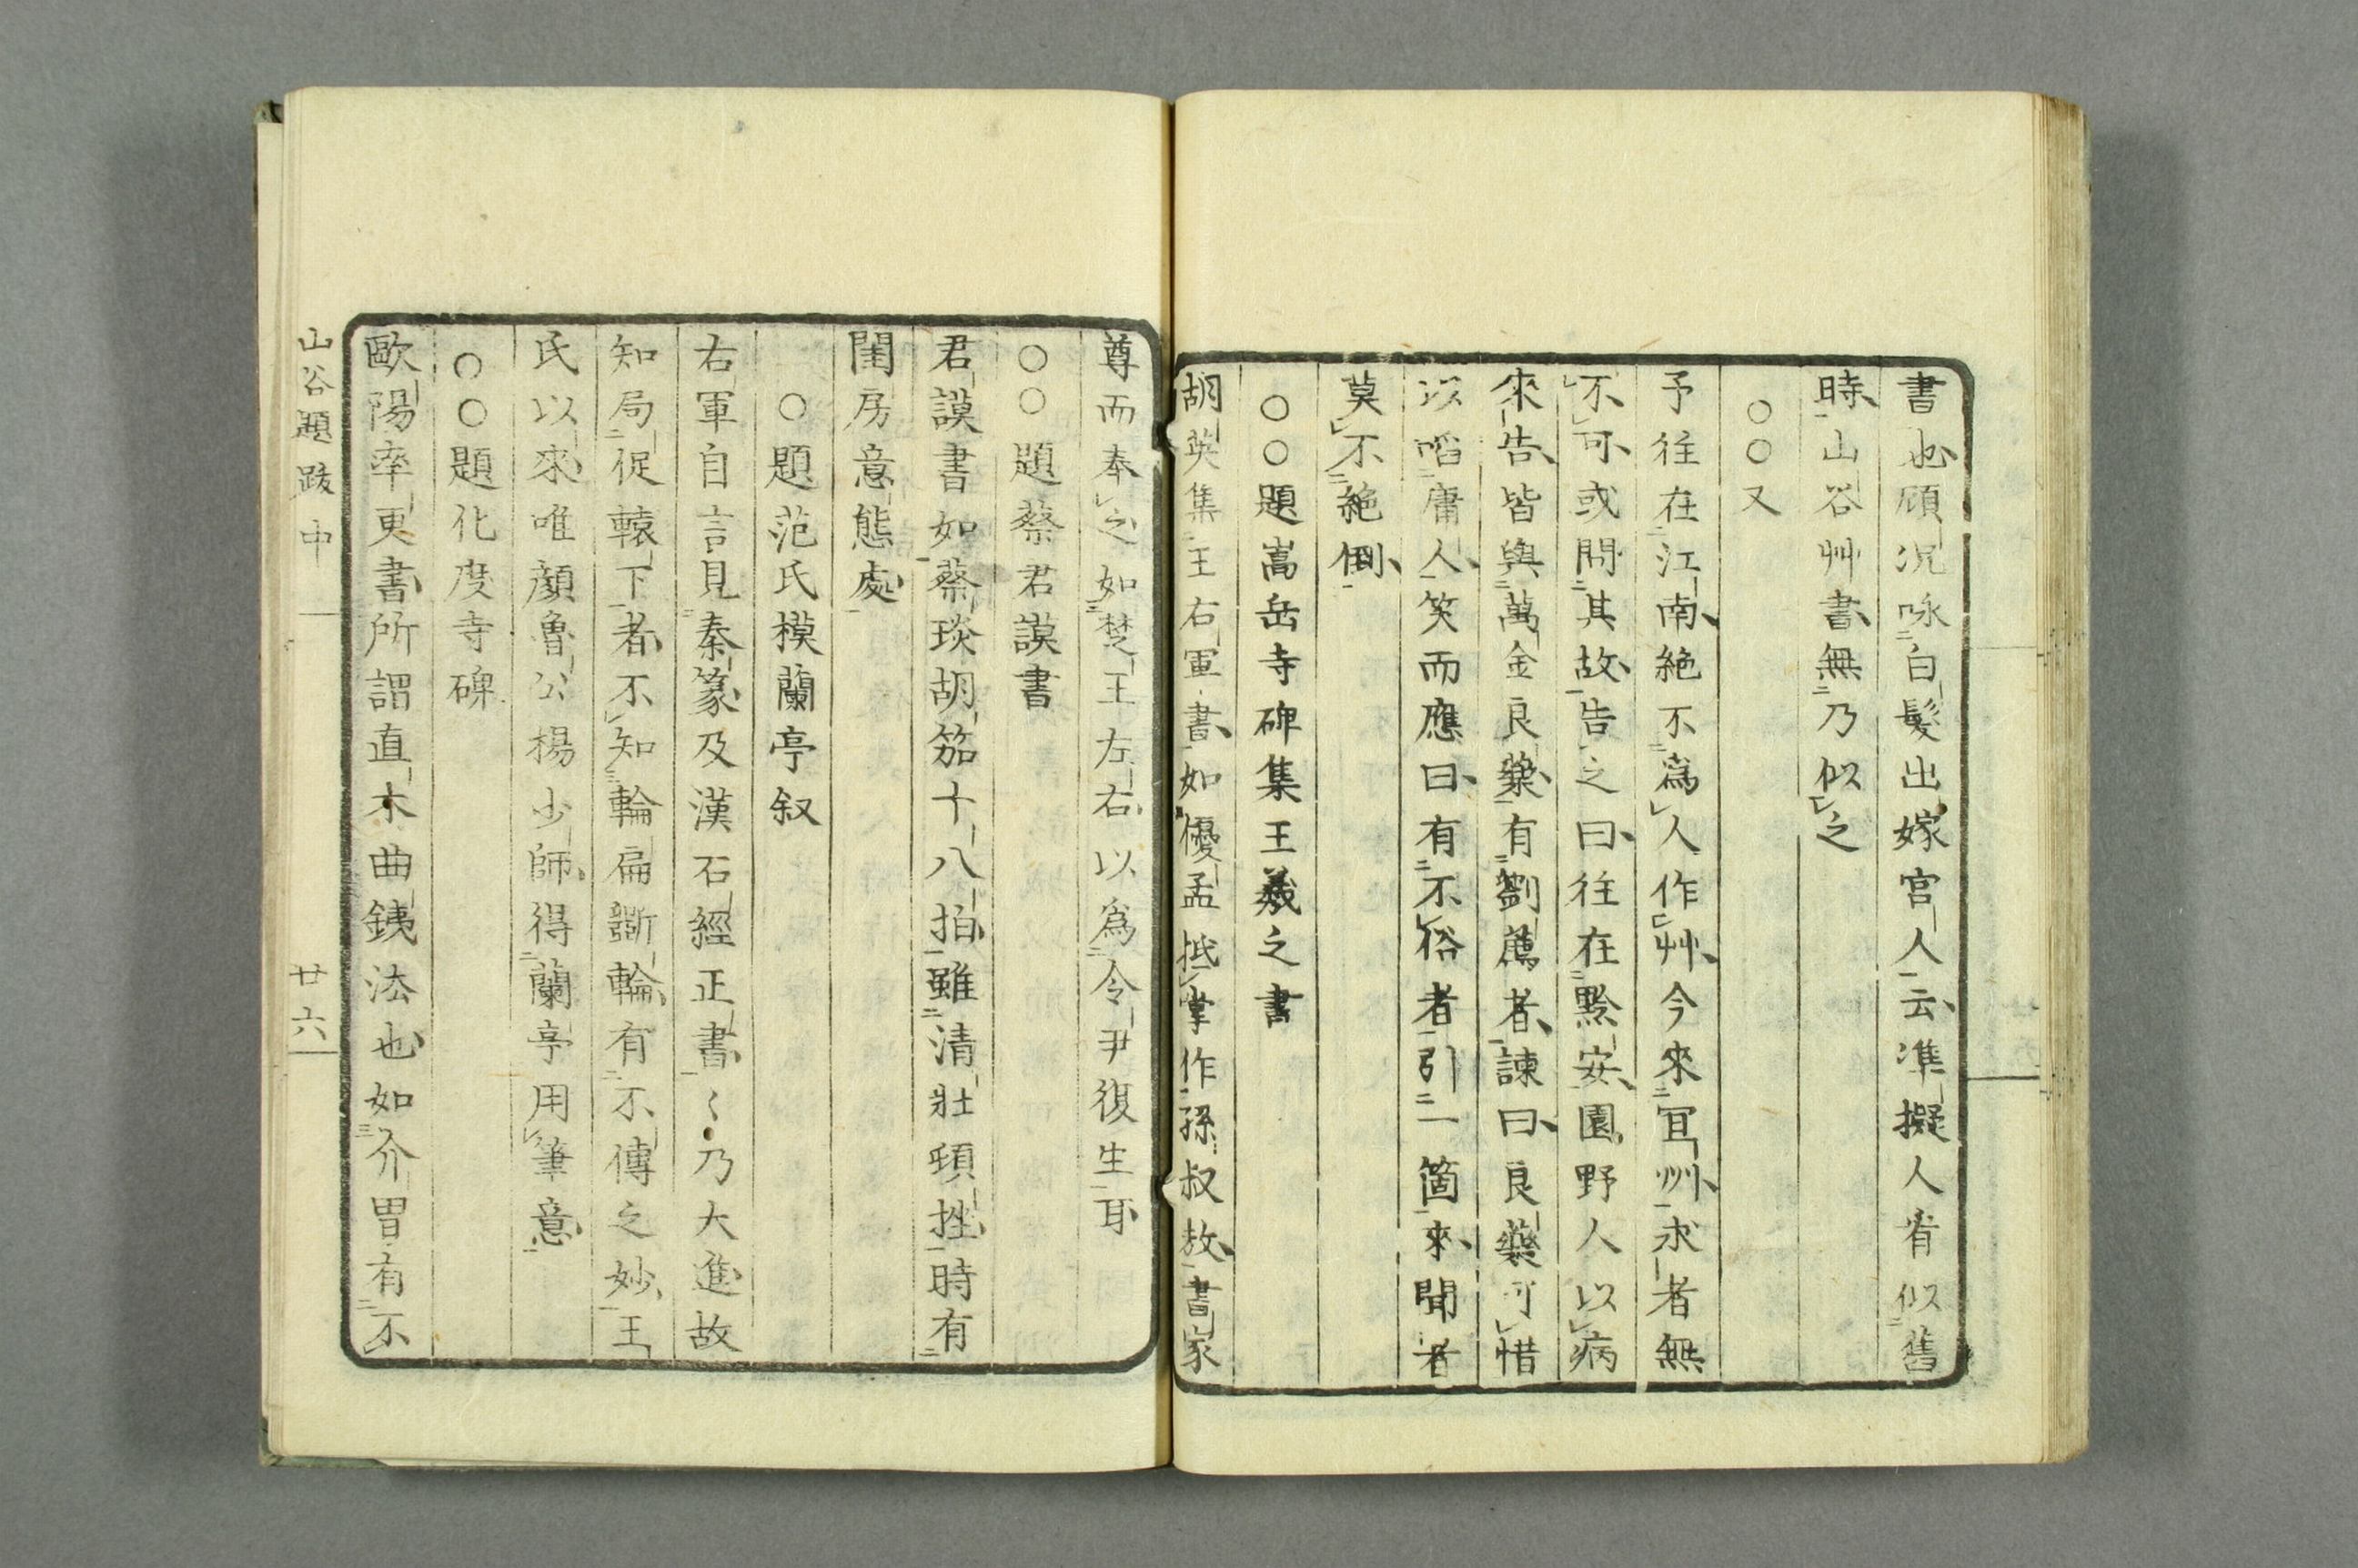 書也顧況咏白髮出嫁宮人云準擬人看似舊
時山谷艸書無乃似之
○○又
予往在江南絶不爲人作艸今來宜州求者無
不可或問其故告之曰往在黔安園野人以病
來告皆與萬金良藥有劉薦者諫曰良藥可惜
以啗庸人笑而應曰有不俗者引一箇來聞者
莫不絶倒
○○題嵩岳寺碑集王羲之書
胡英集王右軍書如優孟抵掌作孫叔敖書家
尊而奉之如楚王左右以爲令尹復生耳
○○題蔡君謨書
君謨書如蔡琰胡笳十八拍雖清壯頓挫時有
閨房意態處
○題范氏模蘭亭叙
右軍自言見秦篆及漢石經正書〻乃大進故
知局促轅下者不知輪扁斲輪有不傳之妙王
氏以來唯顔魯公楊少師得蘭亭用筆意
○○題化度寺碑
歐陽率更書所謂直木曲鐵法也如介冑有不
山谷題跋中
廿六